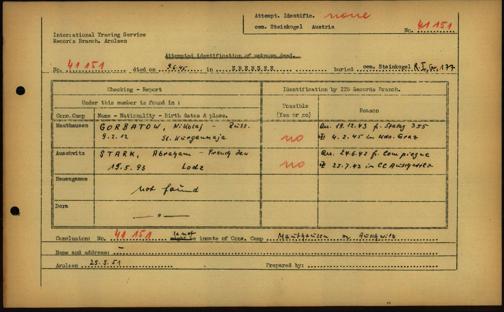 Attempt. Identific. none
International Tracing Service
Records Branch, Arolsen
cem. Steinkogel Austria
No. 41 151
Attempted identification of unknown dead.
No. 41 151 died on in EBENSEE buried cem. Steinkogel
Checking - Report
Identification by ITS Records Branch.
Under this number is found :
Conc.Camp
Name - Nationality - Birth dates & place.
Possible (Yes or no)
Reason
Mauthausen
GORBATOW, Nikolaj Russ.
9.2.12
no
Qu. 19.12.43 f. Stalag 335
4.2.45 in Kdo. Graz
Auschwitz
STARK, Abraham - French Jew
15.5.93 Lodz
no
Qu. 24.6.42 f. Compiegne
23.7.42 in CC Auschwitz
Neuengamme
not found
Dora
- " -
Conclusion: No. 41 151 is not inmate of Conc. Camp Mauthausen or Auschwitz
Name and address: -
Arolsen 25.5.51 Prepared by: